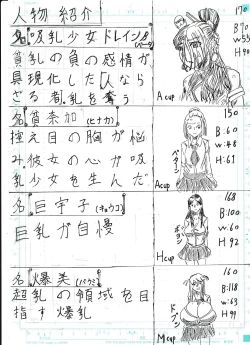 人物 紹介
名 吸乳少女ドレイン
貧乳の負の感情が
具現化した人なら
ざる者.乳を奪う
170
B:70
H:90
Acup
名 貧奈加(ヒナカ)
控え目の胸が悩
み.彼女の心が吸
乳少女を生んだ
ペターン
150
B:60
w:48
H:61
Acup
名 巨宇子(キョウコ)
巨乳が自慢
ボヨン
168
B:100
w:60
H:92
Hcup
名 爆美(バクミ)
超乳の領域を目
指す爆乳
160
B:118
w:63
H:99
Mcup